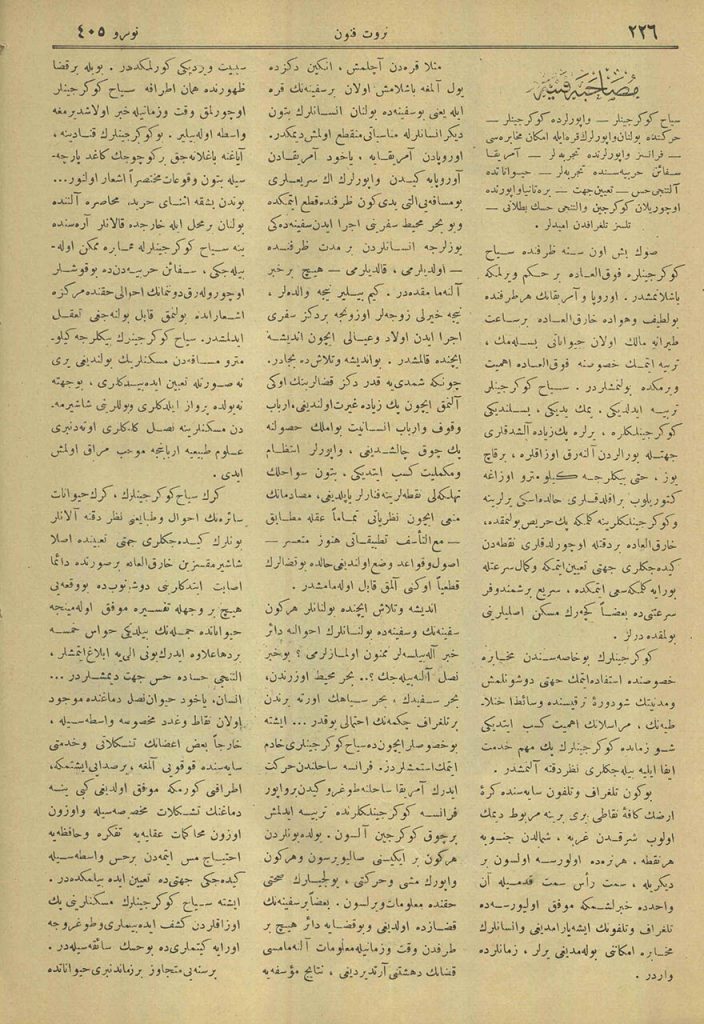 ٢٢٦
ثروت فنون
نومرو ٤٠٥
مصاحبهٔ فنیه
سیاح کوکرجینلر — واپورلرده کوکرجینلر —
حرکتنده بولنان واپورلرك قره ایله امکان مخابره‌سی
— فرانسز واپورلرنده تجربه‌لر — آمریقا
سفائن حربیه‌سنده تجربه‌لر — حیواناتده
آلتنجی حس — تعیین جهت — بره‌تانیا واپورنده
اوچوریلان کوکرجین والتنجی حسك بطلانی —
تلسز تلغرافدن امیدلر .
صوك بش اون سنه ظرفنده سیاح
کوکرجینلره فوق‌العاده بر حکم ویرلمکه
باشلانمشدر . اوروپا و آمریقانك هر طرفنده
بولطیف وهواده خارق‌العاده بر ساعت
طیرانه مالك اولان حیواناتی بسله‌مك ،
تربیه ایتمك خصوصنه فوق‌العاده اهمیت
ویرمکده بولنمشلردر . سیاح کوکرجینلر
تربیه ایدلدیکی . یمك یدیکی ، بسلندیکی
کوکرجینلکلره ، یرلره پك زیاده آلشدقلری
جهتله بورالردن آلنه‌رق اوزاقلره ، برقاچ
یوز ، حتی بیکلرجه کیلومترو اوزاغه
کتوریلوب براقلدقلری حالده اسکی یرلرینه
وکوکرجینلکلرینه کلمکه پك حریص بولنمقده،
خارق‌العاده بر دقتله اوچورلدقلری نقطه‌دن
کیده‌جکلری جهتی تعیین ایتمکه وکمال سرعتله
بورایه کلمکه سعی ایتمکده ، سریع بر شمندوفر
سرعتنی ده بعضاً کچه‌رك مسکن اصلیلرینی
بولمقده درلر .
کوکرجینلرك بو خاصه‌سندن مخابره
خصوصنده استفاده ایتمك جهتی دوشونلمش
ومدنیتك شو دورهٔ ترقیسنده وسائط اختلا-
طیه‌نك ، مراسلاتك اهمیت کسب ایتدیکی
شو زمانده کوکرجینلرك پك مهم خدمت
ایفا ایلیه بیله‌جکلری نظر دقته آلنمشدر .
بوکون تلغراف وتلفون سایه‌سنده کرهٔ
ارضك کافهٔ نقاطی بری برینه مربوط دیمك
اولوب شرقدن غربه ، شمالدن جنوبه
هر نقطه . هر نره‌ده اولورسه اولسون بر
دیکریله ، سمت رأس سمت قدمیله آن
واحدده خبرلشمکه موفق اولیورسه ده
تلغراف وتلفونك ایشه یارامدیغی وانسانلرك
مخابره امکاننی بوله‌مدیغی یرلر ، زمانلرده
واردر .
مثلا قره‌دن آچلمش ، انکین دکزده
یول آلمغه باشلامش اولان بر سفینه‌نك قره
ایله یعنی بو سفینه‌ده بولنان انسانلرك بتون
دیکر انسانلرله مناسباتی منقطع اولمش دیمکدر.
اوروپادن آمریقایه ، یاخود آمریقادن
آوروپایه کیدن واپورلرك اك سریعلری
بو مسافه‌یی التی یدی کون ظرفنده قطع ایتمکده
وبو بحر محیط سفرینی اجرا ایدن سفینه‌ده‌کی
یوزلرجه انسانلردن بر مدت ظرفنده
— اولدیلرمی ، قالدیلرمی — هیچ بر خبر
آلنه‌مامقده‌در . کیم بیلیر نیجه والده‌لر ،
نیجه خیرلی زوجه‌لر اوزونجه بر دکز سفری
اجرا ایدن اولاد وعیالی ایچون اندیشه
ایچنده قالمشدر . بو اندیشه وتلاش ده بجادر.
چونکه شمدی‌یه قدر دکز قضالرینك اوکی
آلنمق ایچون پك زیاده غیرت اولندیغی، ارباب
وقوف وارباب انسانیت بو املك حصولنه
پك چوق چالشدیغی ، واپورلر انتظام
ومکملیت کسب ایتدیکی ، بتون سواحلك
تهلکه‌لی نقطه‌لرینه فنارلر یاپلدیغی، مصادماتك
منعی ایچون نظریاتی تماماً عقله مطابق
— مع‌التأسف تطبیقاتی هنوز متعسر —
اصول وقواعد وضع اولندیغی حالده بو قضالرك
قطعیاً اوکنی آلمق قابل اوله‌مامشدر .
اندیشه وتلاش ایچنده بولنانلر هرکون
سفینه‌نك وسفینه‌ده بولنانلرك احوالنه دائر
خبر آله‌بیلسه‌لر ممنون اولمازلرمی ؟ بو خبر
نصل آلنه‌بیله‌جك ؟.. بحر محیط اوزرندن،
بحر سفیدك ، بحر سیاهك اورته یرندن
بر تلغراف چکمه‌نك احتمالی یوقدر ... ایشته
بو خصوصلر ایچون ده سیاح کوکرجینلری خادم
ایتمك استمشلردر. فرانسه ساحلندن حرکت
ایدرك آمریقا ساحلنه طوغرو کیدن بر واپور
فرانسه کوکرجینلکلرنده تربیه ایدلمش
بر چوق کوکرجین آلسون . یولده بونلردن
هرکون بر ایکیسنی صالیویرسون وهرکون
واپورك مشی وحرکتی ، یولجیلرك صحتی
حقنده معلومات ویرلسون . بعضاً بر سفینه‌نك
قضازده اولدیغی وبو قضایه دائر هیچ بر
طرفدن وقت وزمانیله معلومات آلنه‌مامسی
قضانك دهشتنی آرتدیردیغی ، نتایج مؤسفه‌یه
سببیت ویردیکی کورلمکده‌در . بویله بر قضا
ظهورنده همان اطرافه سیاح کوکرجینلر
اوچورلمق وقت وزمانیله خبر اولاشدیرمغه
واسطه اوله‌بیلیر . بو کوکرجینلرك قنادینه ،
آیاغنه باغلانه‌جق بر کوچوجك کاغد پارچه-
سیله بتون وقوعات مختصراً اشعار اولنور...
بوندن بشقه اثنای حربده، محاصره آلتنده
بولنان بر محل ایله خارجده قالانلر آره‌سنده
ینه سیاح کوکرجینلرله مخابره ممکن اوله-
بیله‌جکی ، سفائن حربیه‌دن ده بو قوشلر
اوچوروله‌رق دوننمانك احوالی حقنده مرکزه
اشعاراتده بولنمق قابل بولنه‌جغی تعقل
ایدلمشدر. سیاح کوکرجینلرك بیکلرجه کیلو-
مترو مسافه‌دن مسکنلرینك بولندیغی یری
نه صورتله تعیین ایده‌بیلدکلری ، بو جهته
نه یولده پرواز ایلدکلری ویوللرینی شاشیرمه-
دن مسکنلرینه نصل کلدکلری اوته‌دنبری
علوم طبیعیه اربابنجه موجب مراق اولمش
ایدی .
کرك سیاح کوکرجینلرك ، کرك حیوانات
سائره‌نك احوال وطبایعنی نظر دقته آلانلر
بونلرك کیده‌جکلری جهتی تعییننده اصلا
شاشیرمقسزین خارق‌العاده بر صورتده دائما
اصابت ایتدکلرینی دوشونوب ده بو وقعه‌یی
هیچ بر وجهله تفسیره موفق اوله‌مینجه
حیواناتده جمله‌نك بیلدیکی حواس خمسه‌یه
بر دها علاوه ایدرك بونی التی‌یه ابلاغ ایتمشلر ،
التنجی حاسه‌ده حس جهت دیمشلردر ...
انسان، یاخود حیوان نصل دماغنده موجود
اولان نقاط وغدد مخصوصه واسطه‌سیله ،
خارجاً بعض اعضانك تشکلاتی وخدمتی
سایه‌سنده قوقویی آلمغه ، بر صدایی ایشتمکه،
اطرافی کورمکه موفق اولدیغی کبی ینه
دماغنك تشکلات مخصوصه‌سیله واوزون
اوزون محاکمات عقلیه‌یه تفکره وحافظه‌یه
احتیاج مس ایتمه‌دن بر حس واسطه‌سیله
کیده‌جکی جهتی ده تعیین ایده بیلمکده‌در .
ایشته سیاح کوکرجینلرك مسکنلرینی پك
اوزاقلردن کشف ایده‌بیلملری وطوغروجه
اورایه کیتملری ده بو حسك سائقه‌سیله‌در .
یر سنه‌یی متجاوز بر زماندنبری حیواناتده